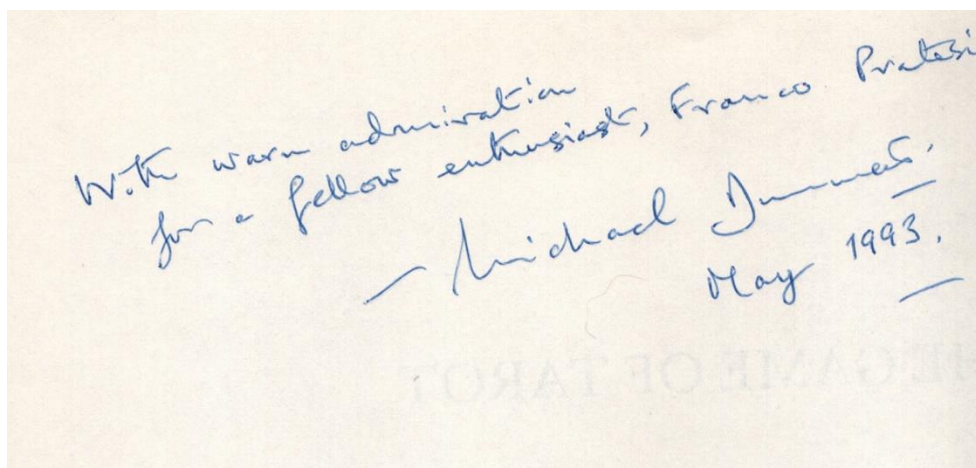 With warm admiration
for a fellow enthusiast, Franco Pratesi
— Michael Dummett.
May 1993.
HE GAME OF TAROT